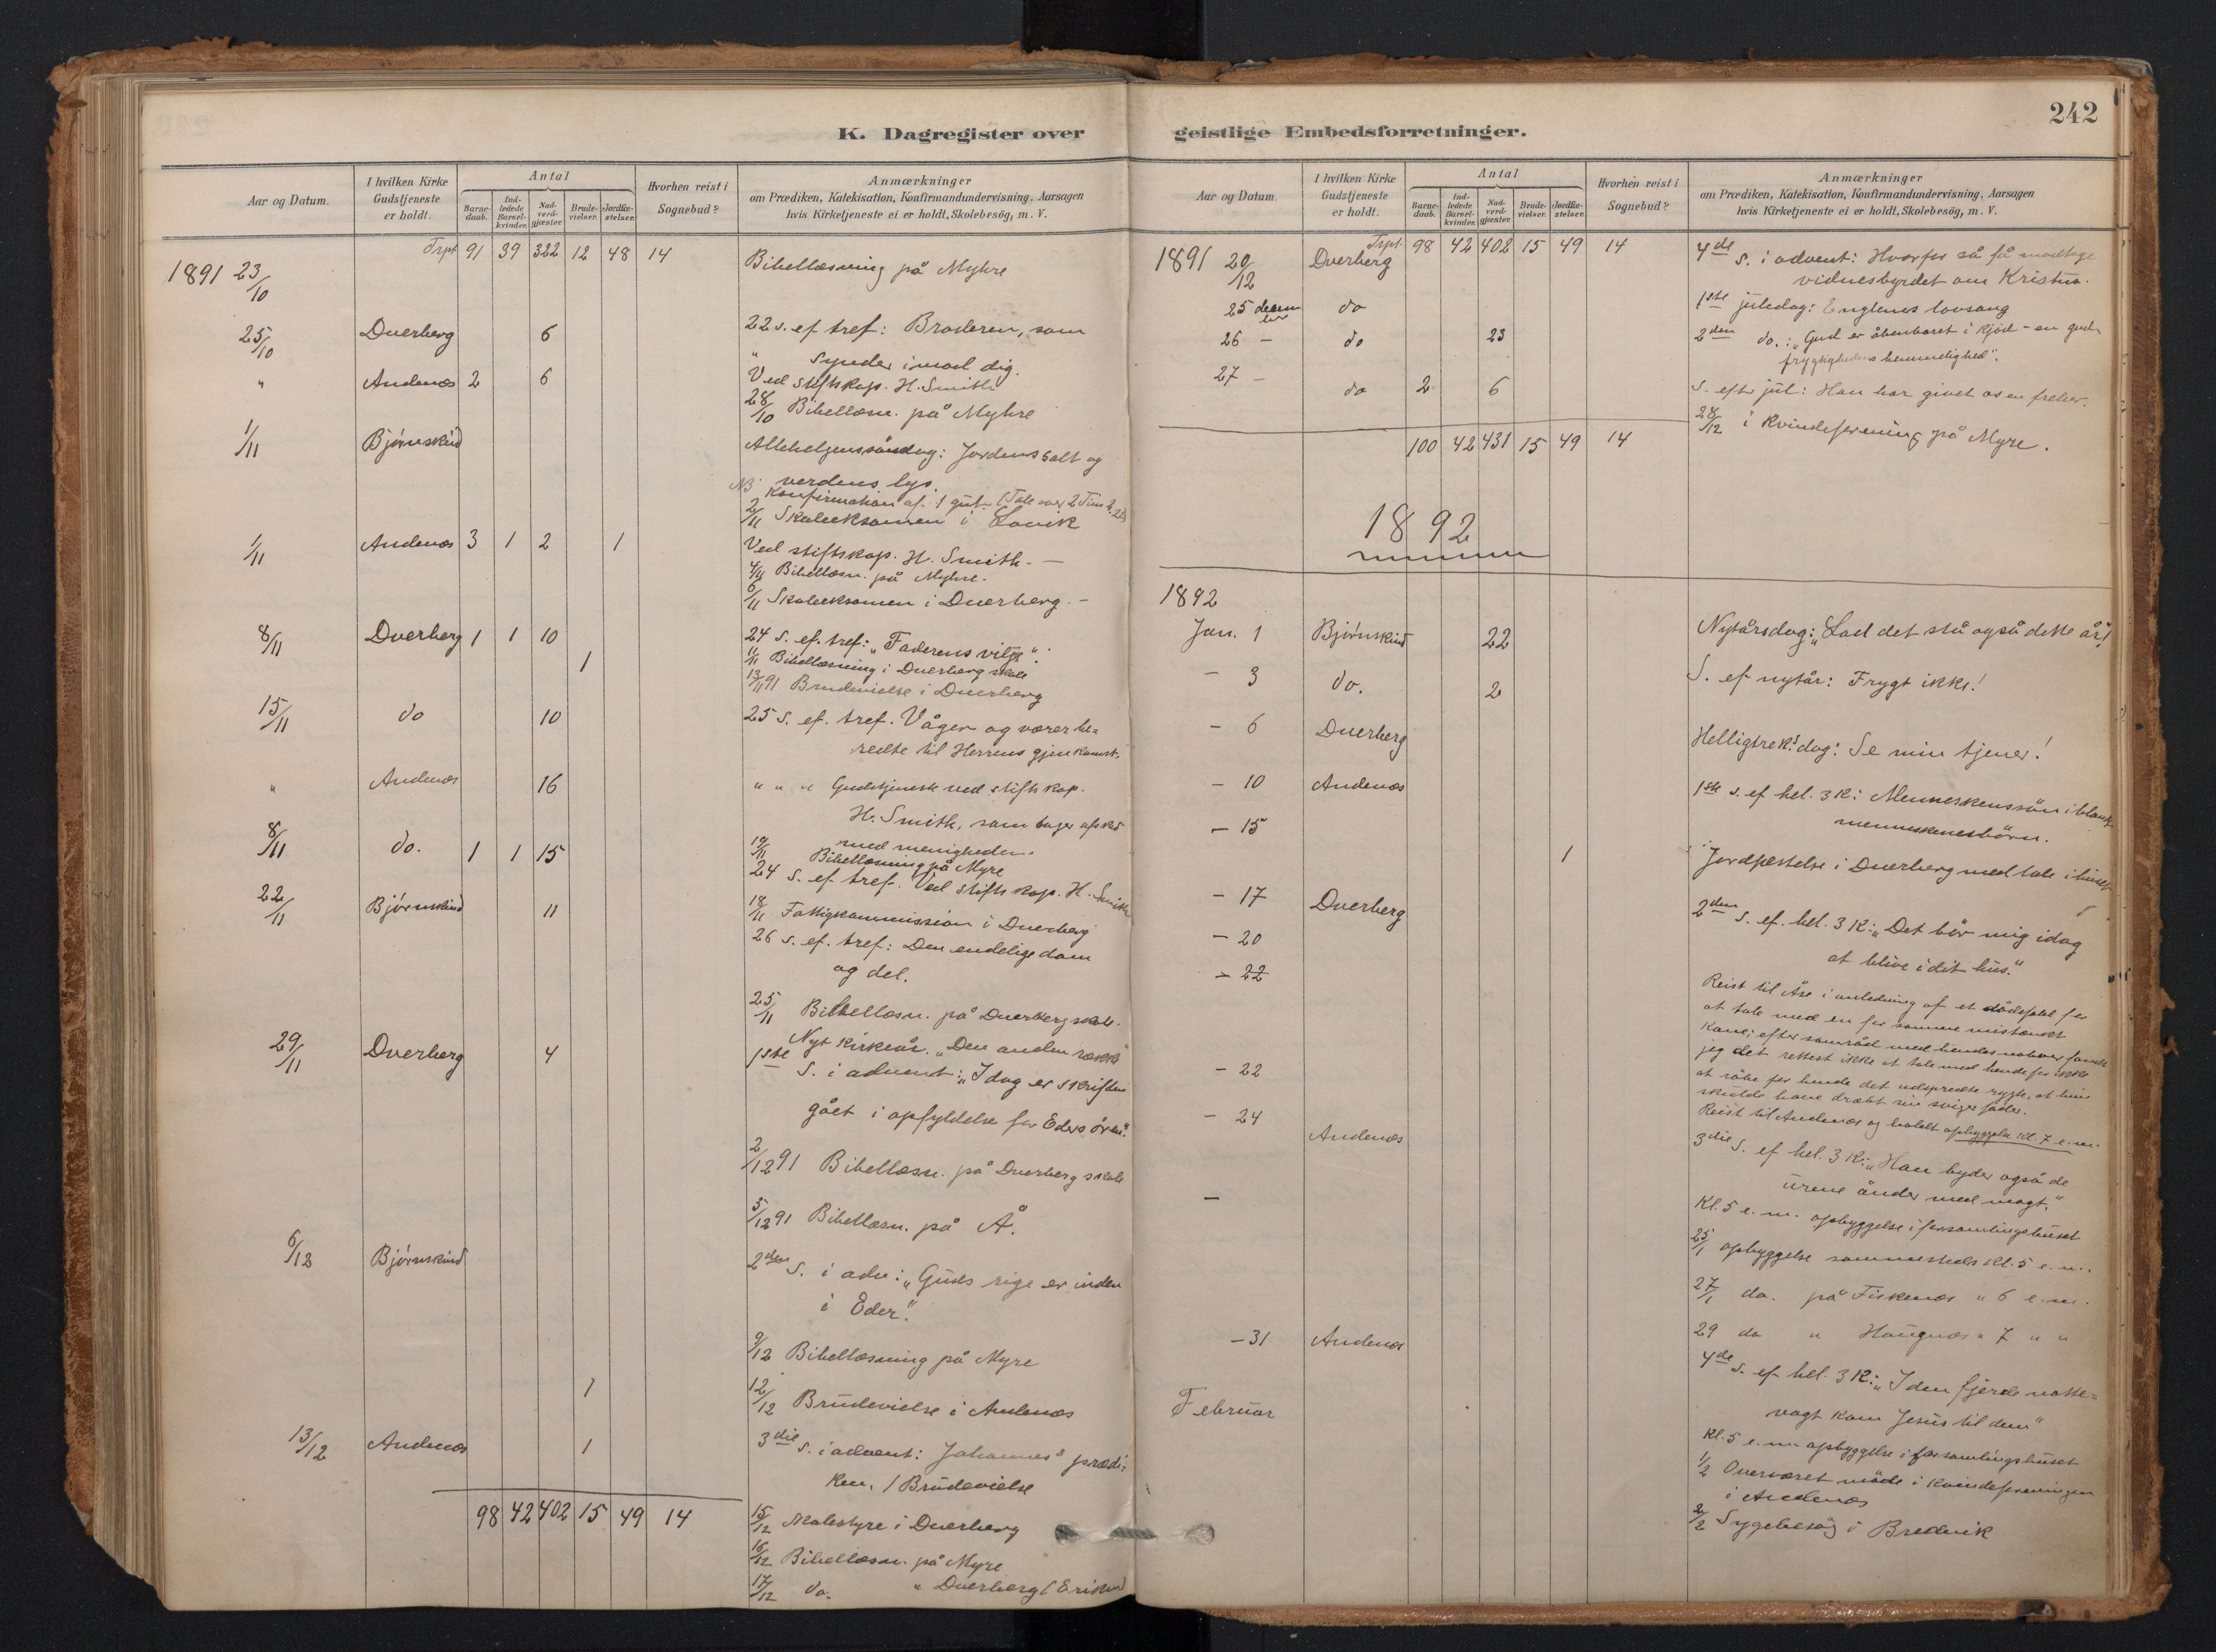 242
K. Dagregister over geistlige Embedsforretninger.
Aar og Datum.
I hvilken Kirke Gudstjeneste er holdt.
Antal
Barne-daab.
Ind-ledede Barsel-kvinder.
Nad-verd-gjæster.
Brude-vielser.
Jordfæ-stelser.
Hvorhen reist i Sognebud?
Anmærkninger
om Prædiken, Katekisation, Konfirmandundervisning, Aarsagen
hvis Kirketjeneste ei er holdt, Skolebesög, m. V.
Trpt 91 39 322 12 48 14
1891 23/10 Bibellæsning på Myhre
25/10 Dverberg 6 22 s. ef. tref: Broderen, som
synder imod dig.
" Andenæs 2 6 Ved stiftskap. H. Smith
28/10 Bibellæsn. på Myhre
1/11 Bjørnskind Allehelgenssöndag: Jordens salt og
verdens lys.
NB Konfirmation af 1 gut. (Tale over 2 Tim 2.22)
2/11 Skoleeksamen i
1/11 Andenæs 3 1 2 1 Ved stiftskap. H. Smith. —
4/11 Bibellæsn. på Myhre.
6/11 Skoleeksamen i Dverberg. -
8/11 Dverberg 1 1 10 24 s. ef. tref: "Faderens vilje".
11/11 Bibellæsning i Dverberg skole
1 13/11 91 Brudevielse i Dverberg
15/11 do 10 25 s. ef. tref. Våger og værer be=
redte til Herrens gjenkomst.
" Andenæs 16 " " " Gudstjeneste ved stiftskap.
H. Smith, som tager afsked
med menigheden.
19/11 Bibellæsning på Myre
8/11 do. 1 1 15 24 s. ef. tref. Ved stiftskap. H. Smith
18/11 Fattigkommission i Dverberg
22/11 Bjørnskind 11 26 s. ef. tref: Den endelige dom
og del.
25/11 Bibellæsn. på Dverberg skole.
Nyt kirkeår. "Den anden række"
29/11 Dverberg 4 1ste s. i advent: "Idag er skriften
gået i opfyldelse for Eders ören".
2/12 91 Bibellæsn. på Dverberg skole
5/12 91 Bibellæsn. på Å.
6/12 Bjørnskind 2den s. i adv: "Guds rige er inden
i Eder".
9/12 Bibellæsning på Myre
1 12/12 Brudevielse i Andenæs
13/12 Andenæs 1 3die s. i advent: Johannes' prædi=
ken. / Brudevielse
98 42 402 15 49 14
15/12 i Dverberg
16/12 Bibellæsn. på Myre
17/12 do. " Dverberg
Trpt 98 42 402 15 49 14
1891 20/12 Dverberg 4de s. i advent: Hvorfor så få modtage
vidnesbyrdet om Kristus.
25 decem ber do 1ste juledag: Englenes lovsang
26 - do 23 2den do.: "Gud er åbenbaret i kjöd - en gud-
frygtighedens hemmelighed".
27 - do 2 6 S. eft jul: Han har givet os en frelser.
28/12 i Kvindeforening på Myre.
100 42 431 15 49 14
1892
1892
Jan. 1 Bjørnskind 22 Nytårsdag: "Lad det stå også dette år"!
- 3 do. 2 S. ef nytår: Frygt ikke!
- 6 Dverberg Helligtrek. dag: Se min tjener!
- 10 Andenæs 1ste s. ef hel. 3 K: Menneskenssön iblandt
menneskenesbörn.
- 15 1 Jordfæstelse i Dverberg med tale i huset
- 17 Dverberg 2den s. ef. hel. 3 K: "Det bör mig idag
at blive i dit hus."
- 20
- 22 Reist til Åse i anledning af et dödsfald for
at tale med en for samme mistænkt
Kone; efter samråd med hendes naboer fandt
jeg det rettest ikke at tale med hende for ikke
at råbe for hende det udspredte rygte, at hun
skulde have dræbt sin svigerfader.
- 22 Reist til Andenæs og holdt opbyggelse kl. 7 e.m.
- 24 Andenæs 3die s. ef hel. 3 K: "Han byder også de
urene ånder med magt."
- Kl. 5 e. m. opbyggelse i forsamlingshuset
25/1 opbyggelse sammesteds kl. 5 e. m.
27/1 do. på Fiskenæs " 6 e. m.
29 do " Haugnæs " 7 " "
- 31 Andenæs 4de s. ef hel. 3 K: "I den fjerde natte=
vagt kom Jesus til dem"
Kl. 5 e. m. opbyggelse i forsamlingshuset
Februar
1/2 Overværet möde i Kvindeforeningen
i Andenæs
2/2 Sygebesög i Bredvik